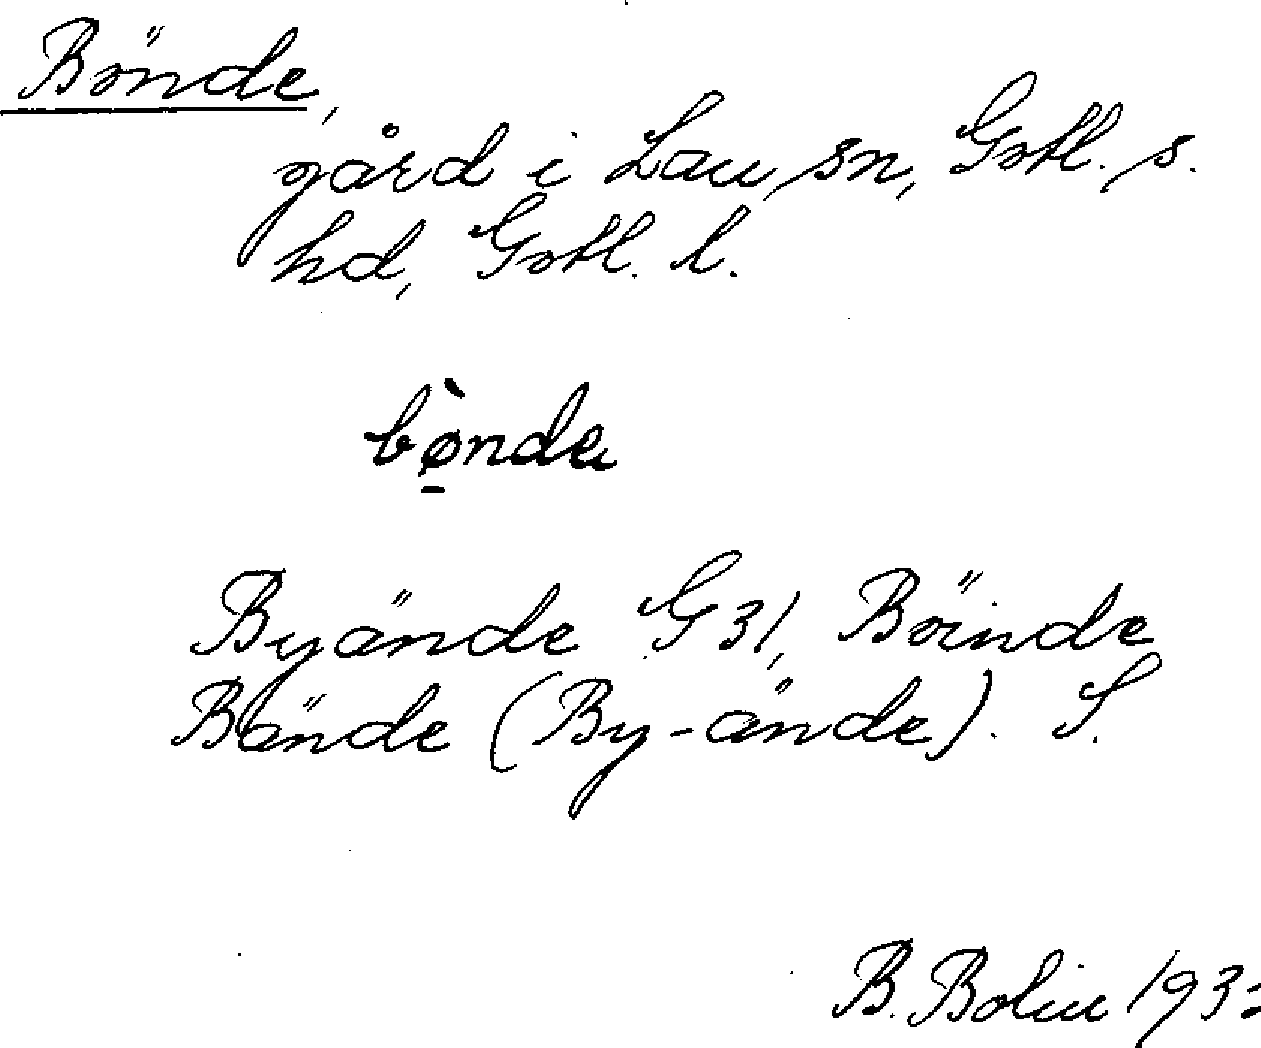 Bönde,
gård i Lau sn, Gotl. s.
hd, Gotl. l.
bø̀nde
Byände G31, Böinde
Bände (By-ände). S.
B. Bolin 193